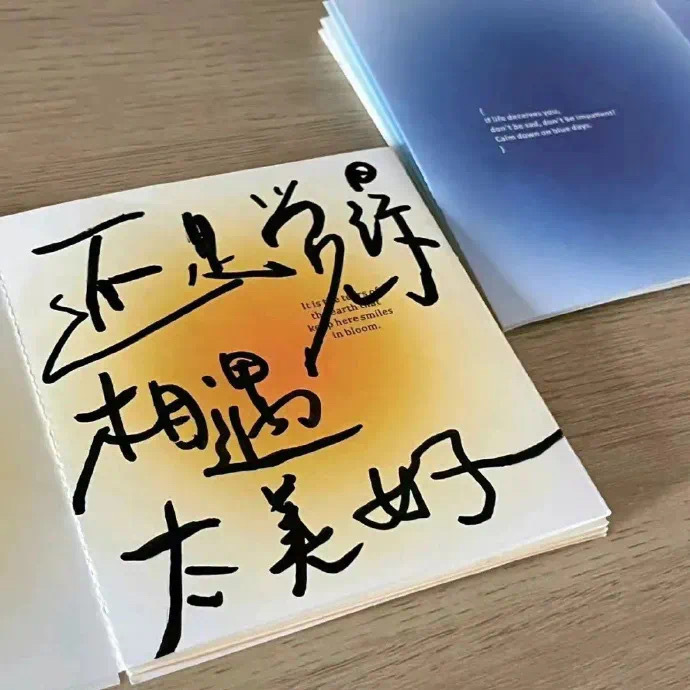 还是觉得
相遇
太美好
It is the tears of
the earth that
keep here smiles
in bloom.
{
If life deceives you,
don't be sad, don't be impatient!
Calm down on blue days.
}